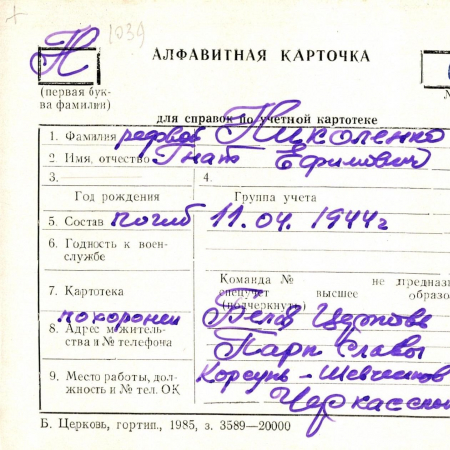 1039
Н
АЛФАВИТНАЯ КАРТОЧКА
(первая бук-
ва фамилии)
для справок по учетной картотеке
1. Фамилия рядовой Николенко
2. Имя, отчество Гнат Ефимович
3. 4.
Год рождения Группа учета
5. Состав погиб 11.04. 1944г
6. Годность к воен-
службе
Команда № не предназ
7. Картотека спецучет высшее образо
(подчеркнуть)
похоронен Белая Церковь
8. Адрес м житель-
ства и № телефона Парк Славы
9. Место работы, дол- Корсунь-Шевченков
жность и № тел. ОК Черкасской
Б. Церковь, гортип., 1985, з. 3589—20000